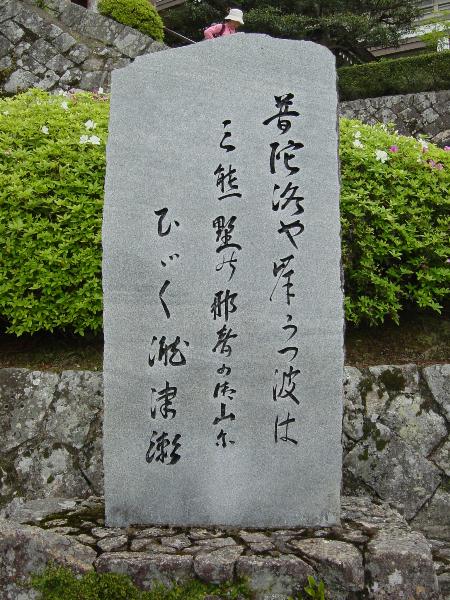 普陀洛や岸うつ波は
三熊野の那智の御山尓
ひゞく瀧津瀬